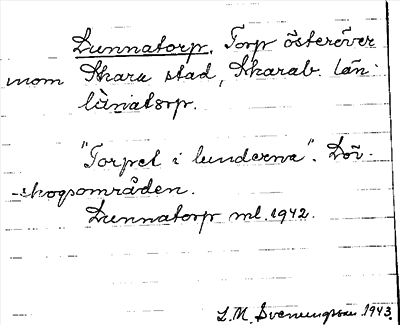 Lunnatorp. Torp österöver
inom Skara stad, Skarab. län.
lùnatårp.
"Torpet i lunderna". Löv-
-skogsområden.
Lunnatorp ml. 1942.
L. M. Svenungsson 1943.